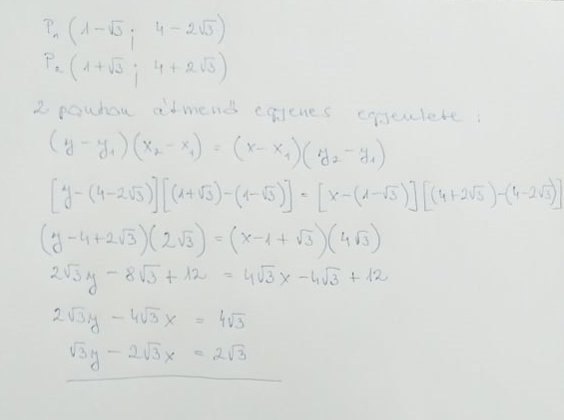 P₁ (1-√3 ; 4-2√3)
P₂ (1+√3 ; 4+2√3)
2 ponton átmenő egyenes egyenlete :
(y-y₁)(x₂-x₁) = (x-x₁)(y₂-y₁)
[y-(4-2√3)][(1+√3)-(1-√3)] = [x-(1-√3)][(4+2√3)-(4-2√3)]
(y-4+2√3)(2√3) = (x-1+√3)(4√3)
2√3y - 8√3 + 12 = 4√3x - 4√3 + 12
2√3y - 4√3x = 4√3
√3y - 2√3x = 2√3